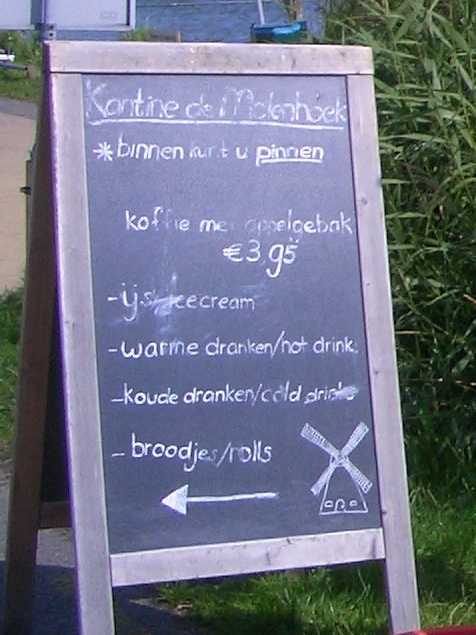 Kantine de Molenhoek
* binnen kunt u pinnen
koffie met appelgebak
€3,95
- ijs/icecream
- warme dranken/hot drink
- koude dranken/cold drinks
- broodjes/rolls